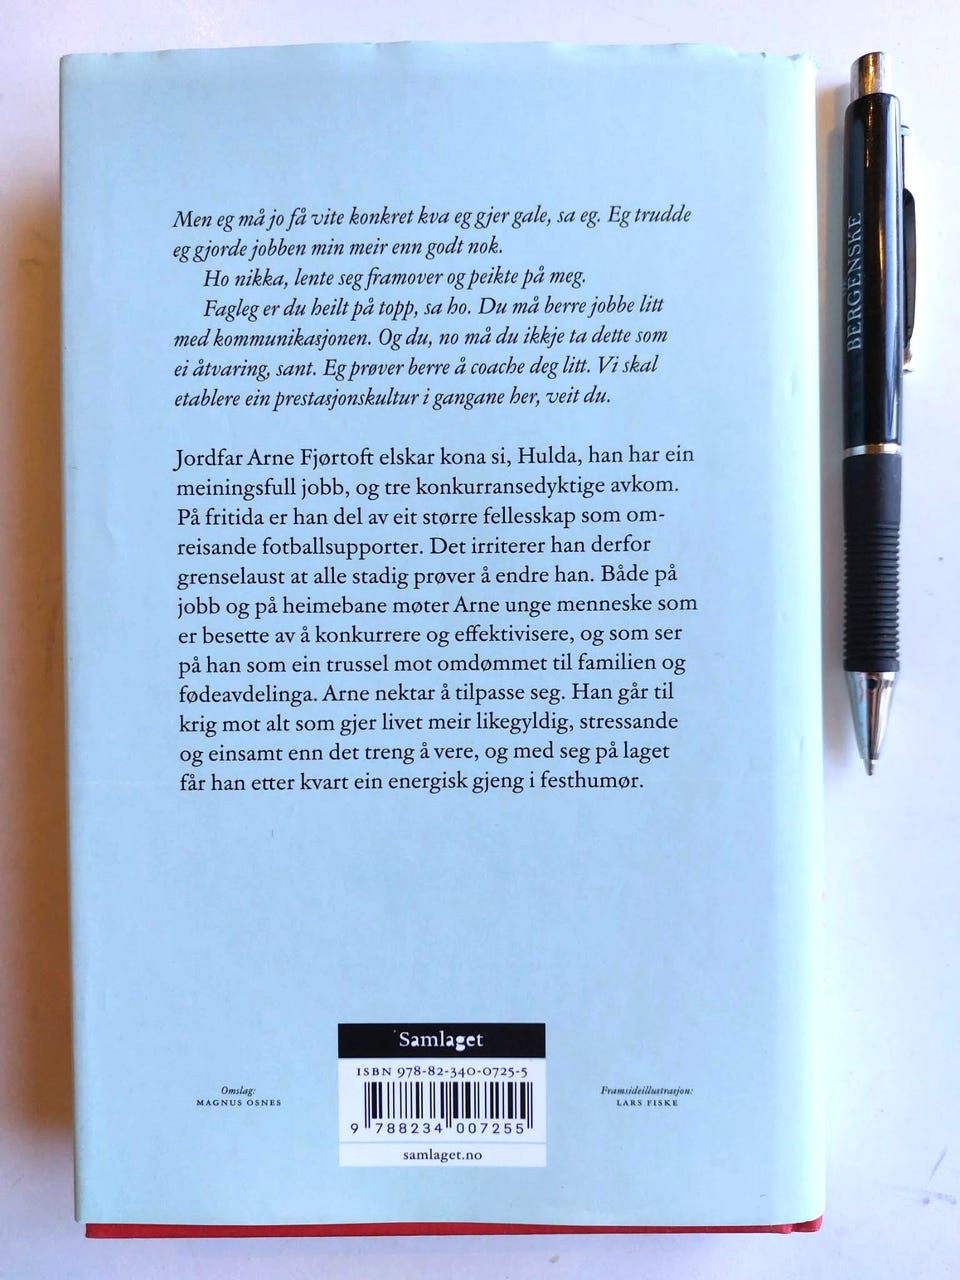 Men eg må jo få vite konkret kva eg gjer gale, sa eg. Eg trudde
eg gjorde jobben min meir enn godt nok.
Ho nikka, lente seg framover og peikte på meg.
Fagleg er du heilt på topp, sa ho. Du må berre jobbe litt
med kommunikasjonen. Og du, no må du ikkje ta dette som
ei åtvaring, sant. Eg prøver berre å coache deg litt. Vi skal
etablere ein prestasjonskultur i gangane her, veit du.
Jordfar Arne Fjørtoft elskar kona si, Hulda, han har ein
meiningsfull jobb, og tre konkurransedyktige avkom.
På fritida er han del av eit større fellesskap som om-
reisande fotballsupporter. Det irriterer han derfor
grenselaust at alle stadig prøver å endre han. Både på
jobb og på heimebane møter Arne unge menneske som
er besette av å konkurrere og effektivisere, og som ser
på han som ein trussel mot omdømmet til familien og
fødeavdelinga. Arne nektar å tilpasse seg. Han går til
krig mot alt som gjer livet meir likegyldig, stressande
og einsamt enn det treng å vere, og med seg på laget
får han etter kvart ein energisk gjeng i festhumør.
Omslag:
MAGNUS OSNES
Samlaget
ISBN 978-82-340-0725-5
9 788234 007255
samlaget.no
Framsideillustrasjon:
LARS FISKE
BERGENSKE